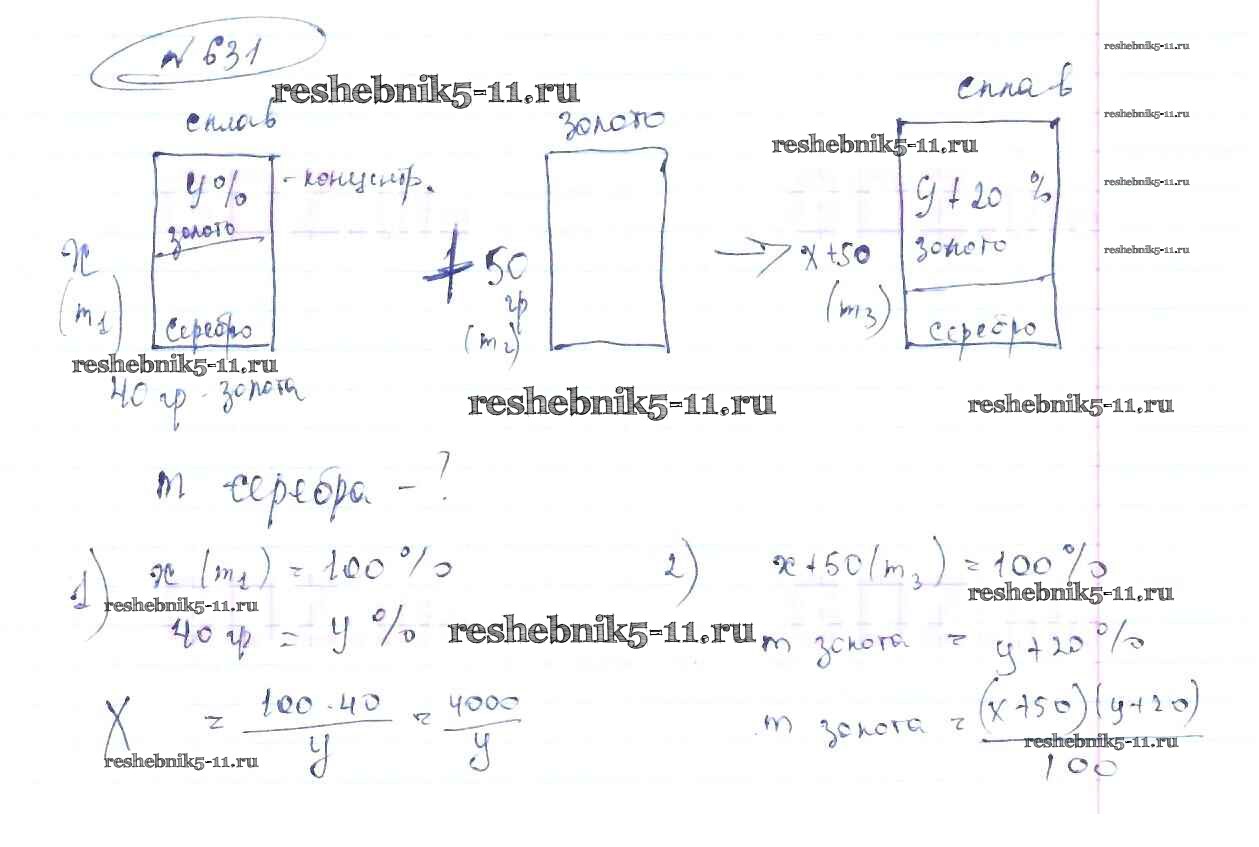 № 631
reshebnik5-11.ru
reshebnik5-11.ru
сплав
золото
сплав
reshebnik5-11.ru
reshebnik5-11.ru
y% - концентр.
золото
reshebnik5-11.ru
y + 20 %
x
(m1)
+ 50
гр
(m2)
x+50
(m3)
золото
reshebnik5-11.ru
серебро
серебро
reshebnik5-11.ru
40 гр - золота
reshebnik5-11.ru
reshebnik5-11.ru
m серебра - ?
1) x (m1) = 100 %
2) x+50 (m3) = 100 %
reshebnik5-11.ru
reshebnik5-11.ru
40 гр = y %
reshebnik5-11.ru
m золота = y + 20 %
X = 100 · 40 / y = 4000 / y
m золота = (x+50)(y+20) / 100
reshebnik5-11.ru
reshebnik5-11.ru